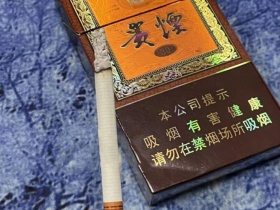 贵煙
本公司提示
吸烟有害健康
请勿在禁烟场所吸烟